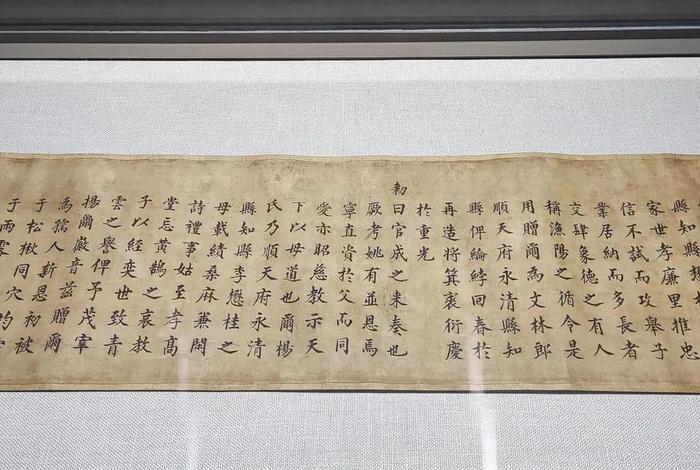 縣知縣
家世孝廉里推忠
信不試而攻舉子
業居納而多長者
交肆象德之有人
稱漁陽之循令是
用贈爾為文林郎
順天府永清縣知
縣俾綸綍回春於
再造將箕裘衍慶
於重光
勅
曰官成之來奏也
厥考姚有並恩焉
寧直資於父而同
愛亦昭慈教示天
下以母道也爾楊
氏乃順天府永清
縣知縣李懋桂之
母載績桑麻兼閑
詩禮事姑至孝高
堂忘黃鵠之哀教
子以經奕世致青
雲之譽俾予茂宰
揚爾徽音茲贈爾
為孺人新恩初被
于松楸同穴均
于雨露